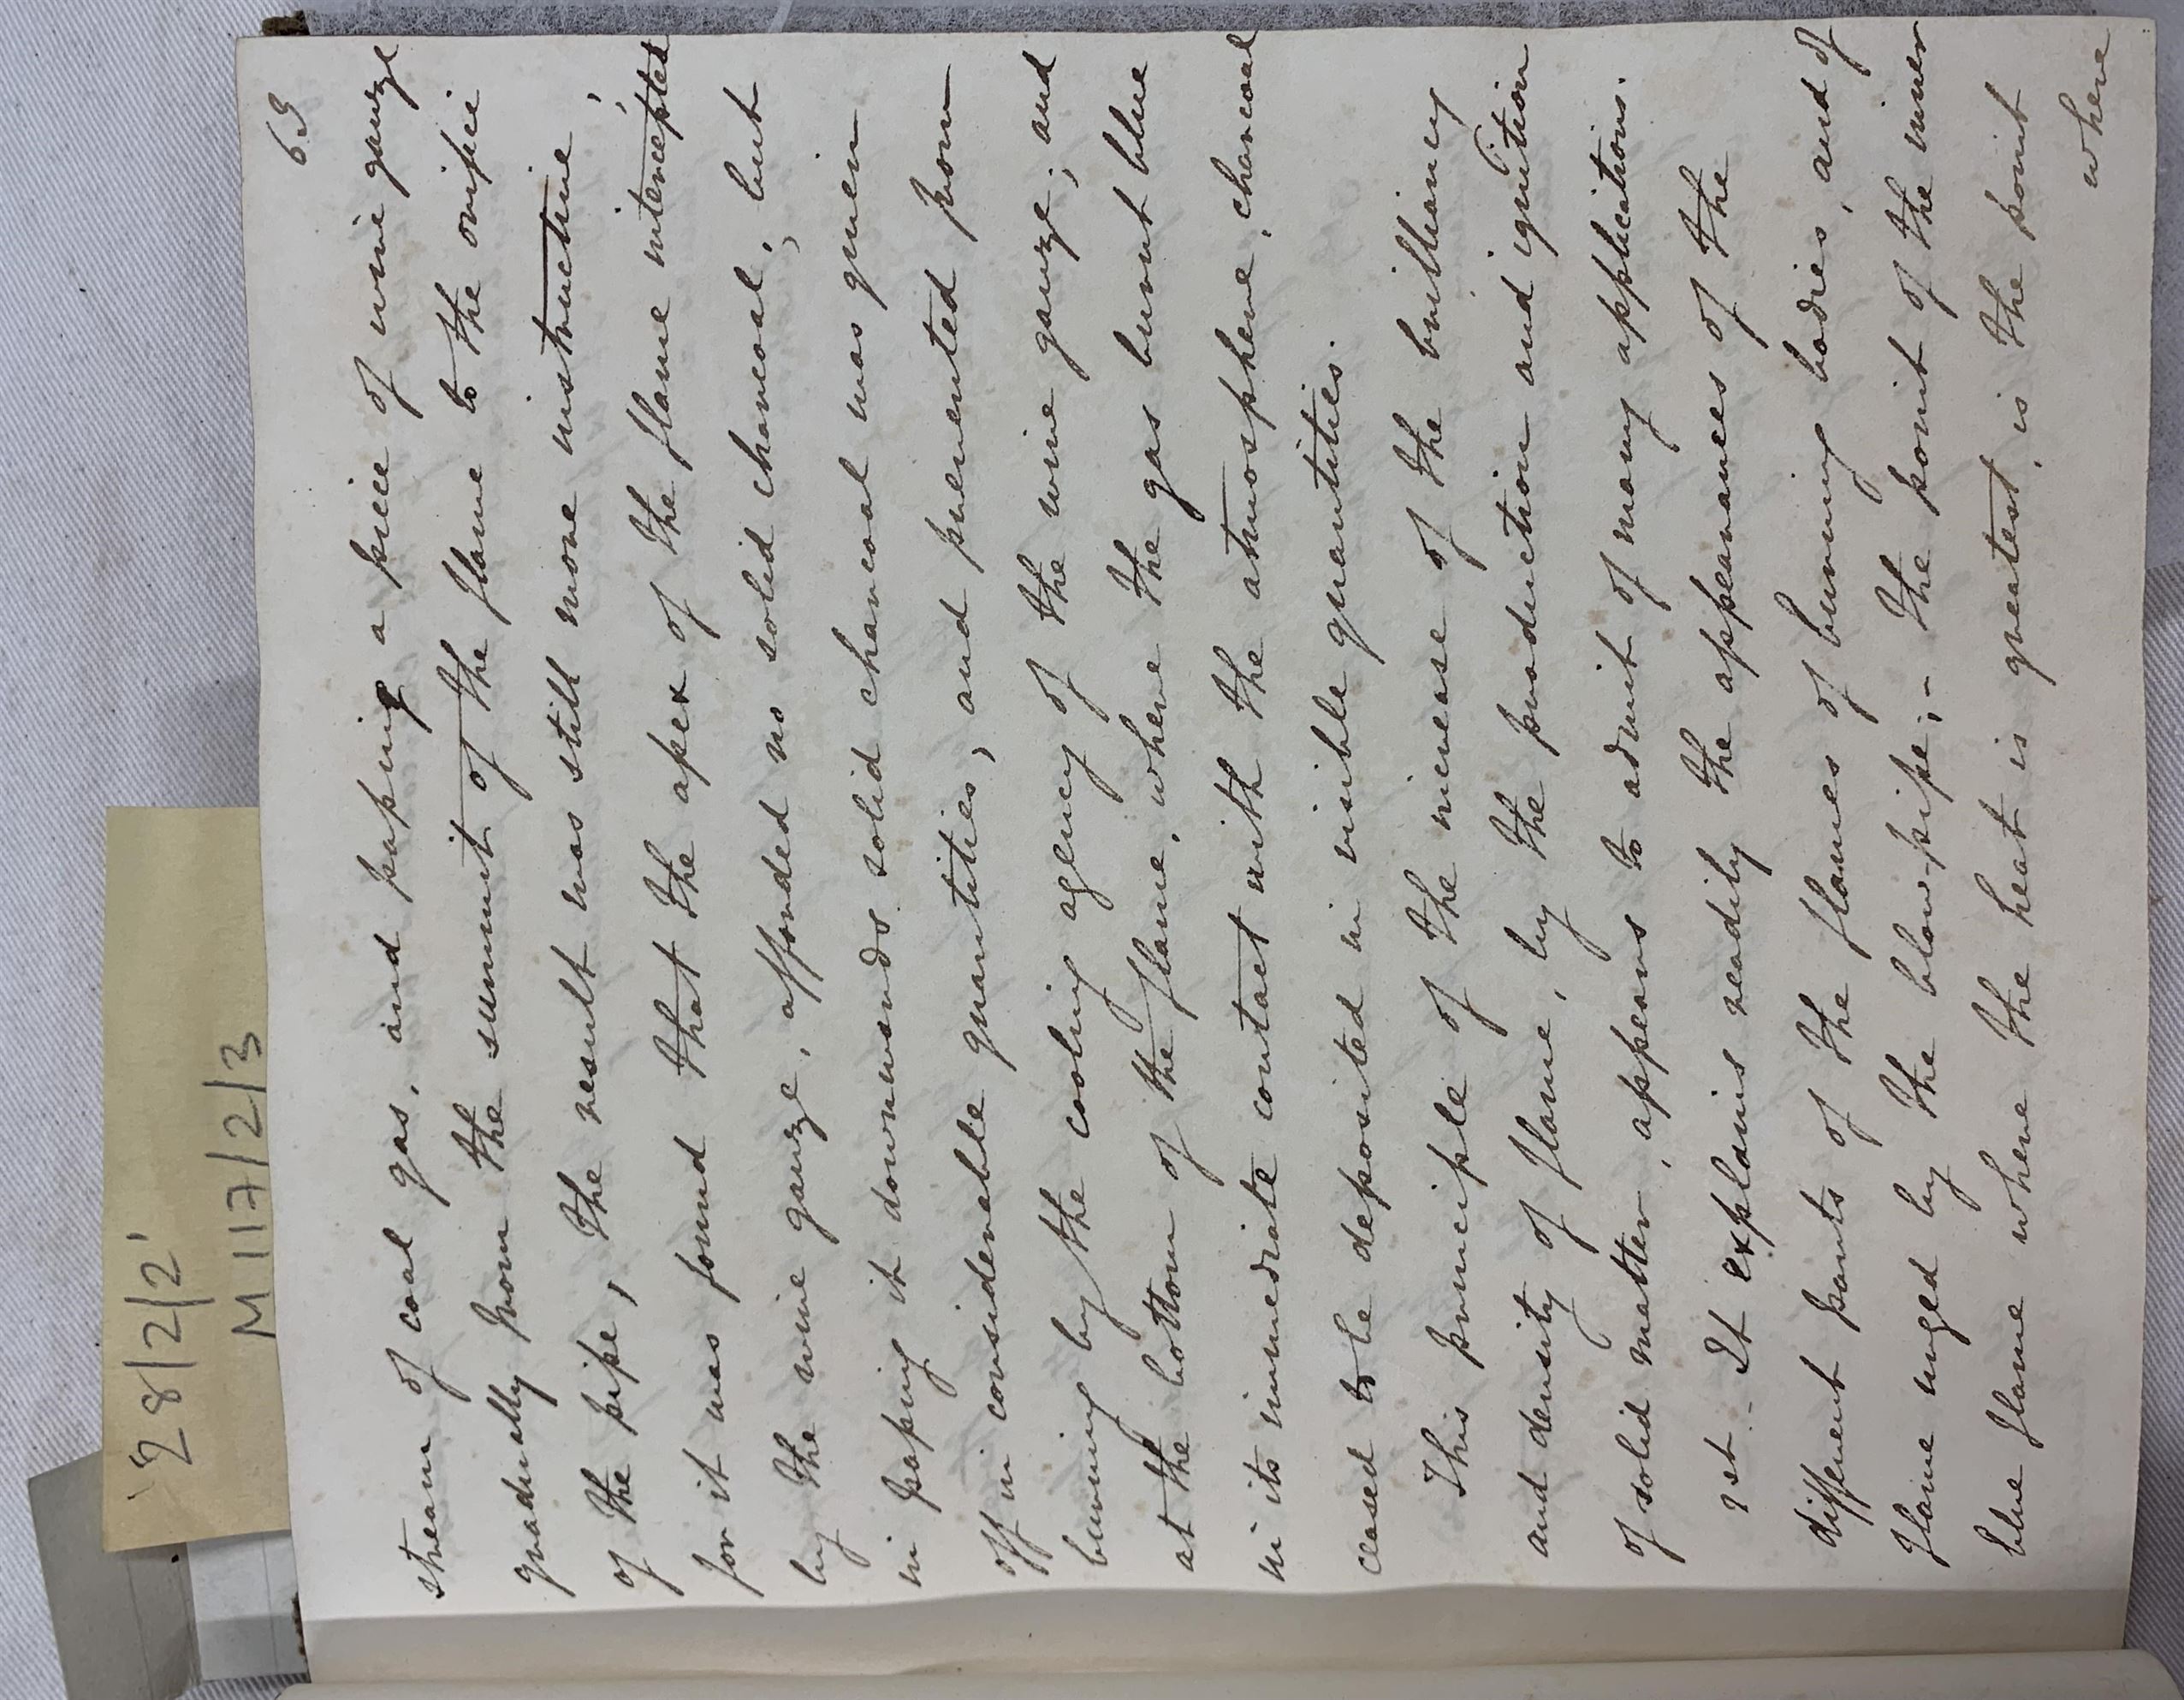 28/2/2'
M117/2/3
69
stream of coal gas, and passing a piece of wire gauze
gradually from the summit of the flame to the orifice
of the pipe, the result was still more instructive,
for it was found that the apex of the flame intercepted
by the wire gauze, afforded no solid charcoal; but
in passing it downwards solid charcoal was given
off in considerable quantities, and prevented from
burning by the cooling agency of the wire gauze; and
at the bottom of the flame, where the gas burnt blue
in its immediate contact with the atmosphere, charcoal
ceased to be deposited in visible quantities.
This principle of the increase of the brilliancy
and density of flame, by the production and ignition
of solid matter, appears to admit of many applications.
1st. It explains readily the appearances of the
different parts of the flames of burning bodies, and of
flame urged by the blow-pipe;- the point of the inner
blue flame where the heat is greatest, is the point
where